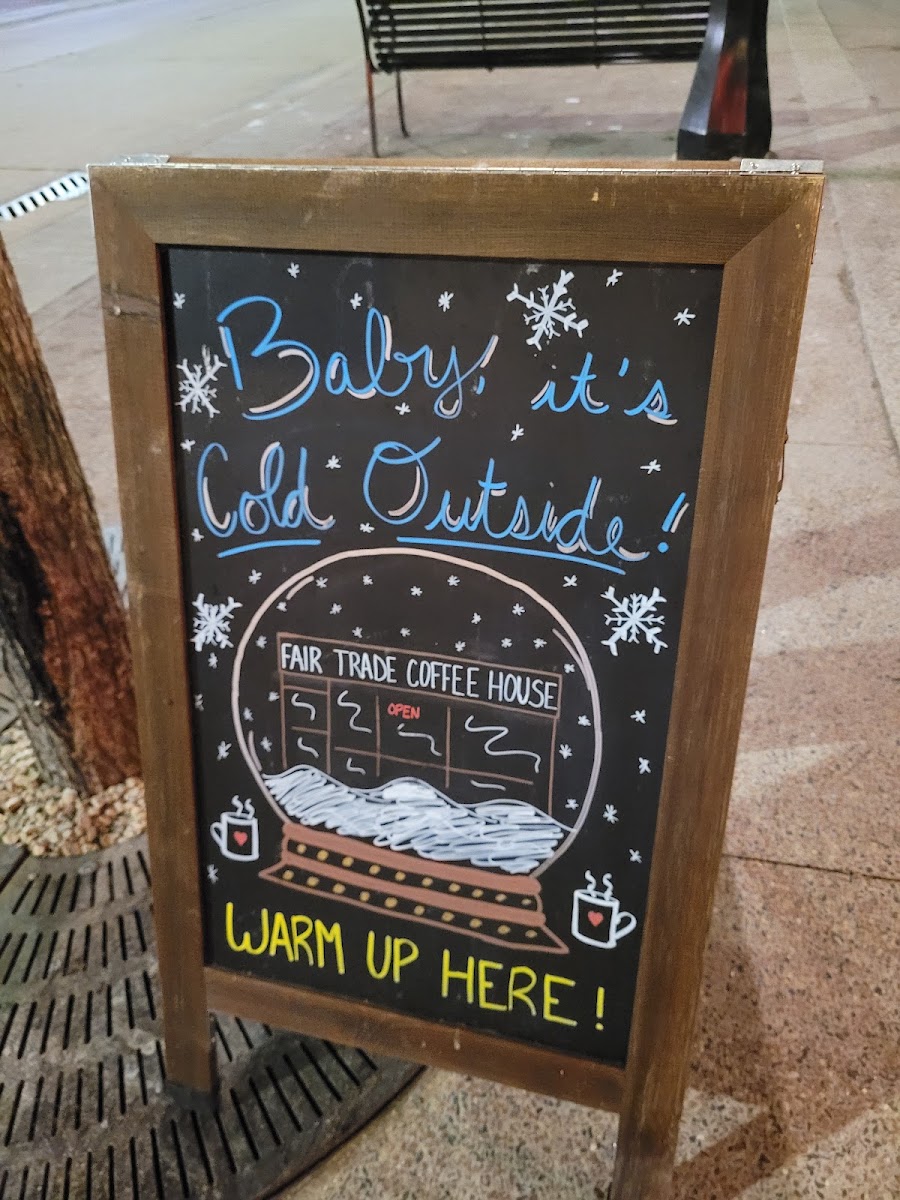 Baby, it's
Cold Outside!
FAIR TRADE COFFEE HOUSE
OPEN
WARM UP HERE!